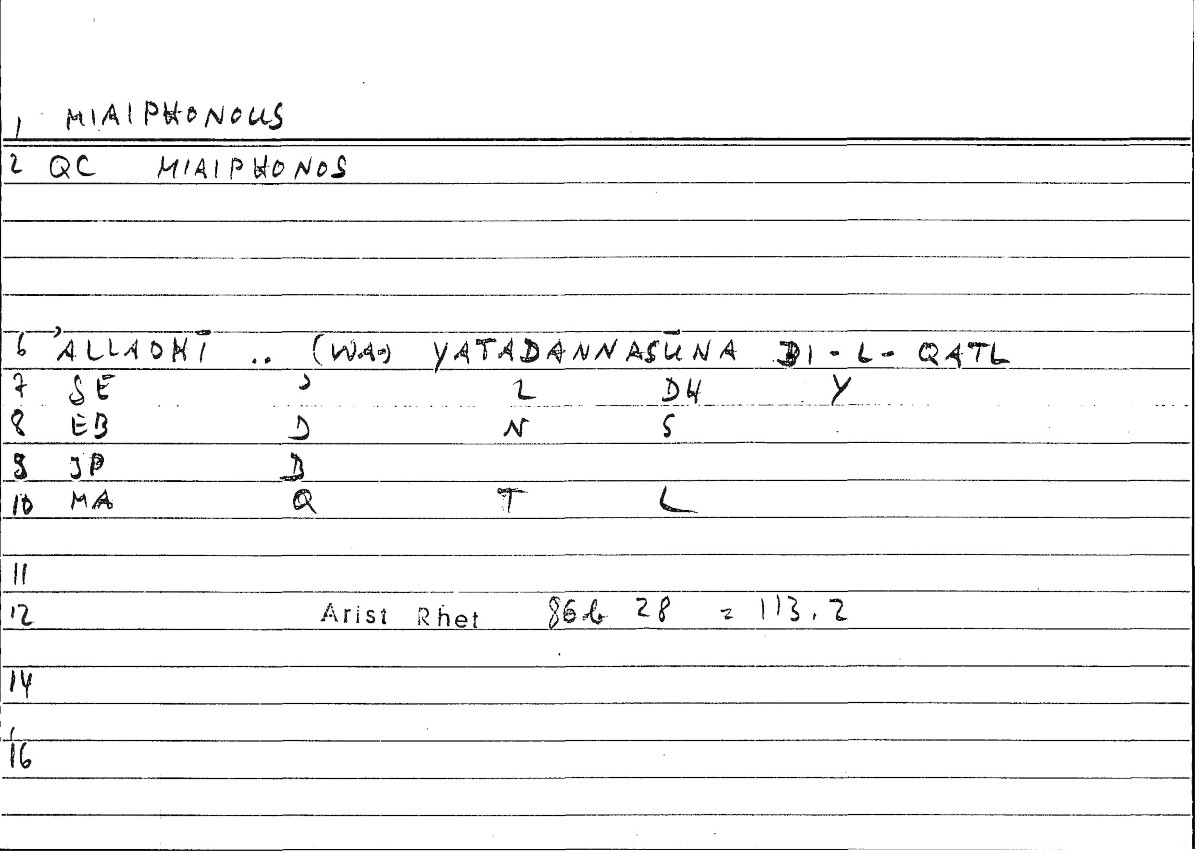 1 MIAIPHONOUS
2 QC MIAIPHONOS
6 'ALLADHĪ .. (WA) YATADANNASŪNA BI-L-QATL
7 SE ' L DH Y
8 EB D N S
9 JP B
10 MA Q T L
11
12 Arist Rhet 86b 28 = 113,2
14
16